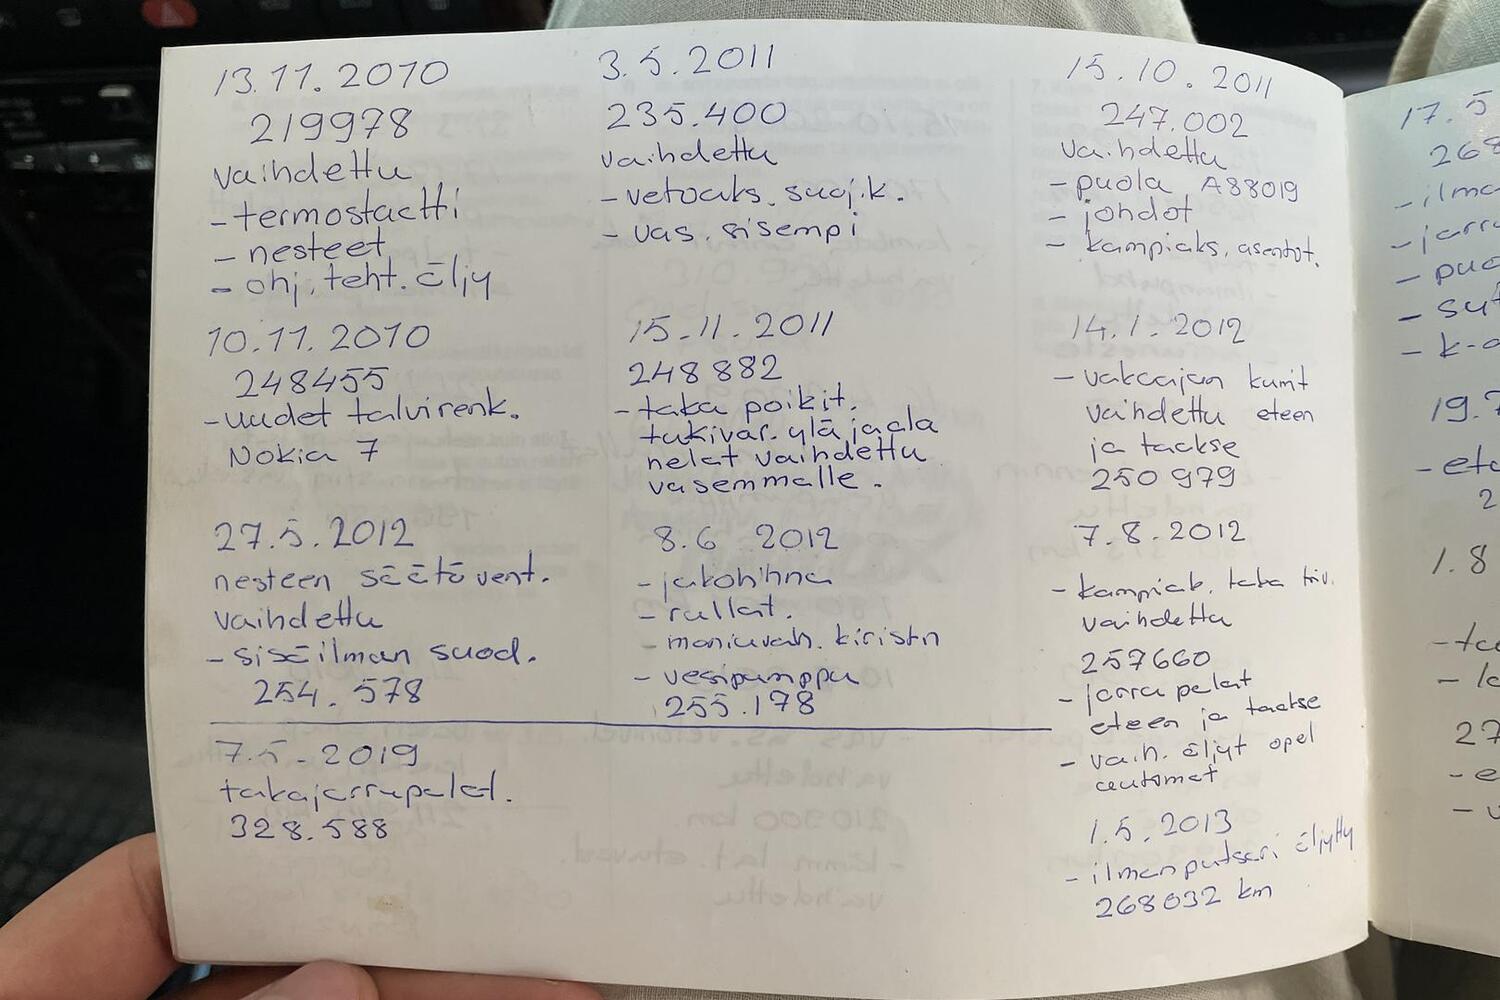 13.11.2010
219978
vaihdettu
- termostaatti
- nesteet
- ohj. teht. öljy
3.5.2011
235.400
vaihdettu
- vetoaks. suoj.k.
- vas. sisempi
15.10.2011
247.002
vaihdettu
- puola A88019
- johdot
- kampiaks. asentot.
10.11.2010
248455
- uudet talvirenk.
Nokia 7
15.11.2011
248882
- taka poikit.
tukivar. ylä ja ala
nelat vaihdettu
vasemmalle.
14.1.2012
- vakaajan kumit
vaihdettu eteen
ja taakse
250979
27.5.2012
nesteen säätövent.
vaihdettu
- sisäilman suod.
254.578
8.6 2012
- jakohihna
- rullat.
- moniurah. kiristin
- vesipumppu
255.178
7.8.2012
- kampiak. taka tiiv.
vaihdettu
257660
- jarrupalat
eteen ja taakse
- vaih. öljyt opel
automat
7.5-2019
takajarrupalat.
328.588
1.5.2013
- ilmanputsari öljytty
268032 km
17.5
268
- ilma
- jarru
- puo
- k-a
19.7
- eta
2
1.8
27